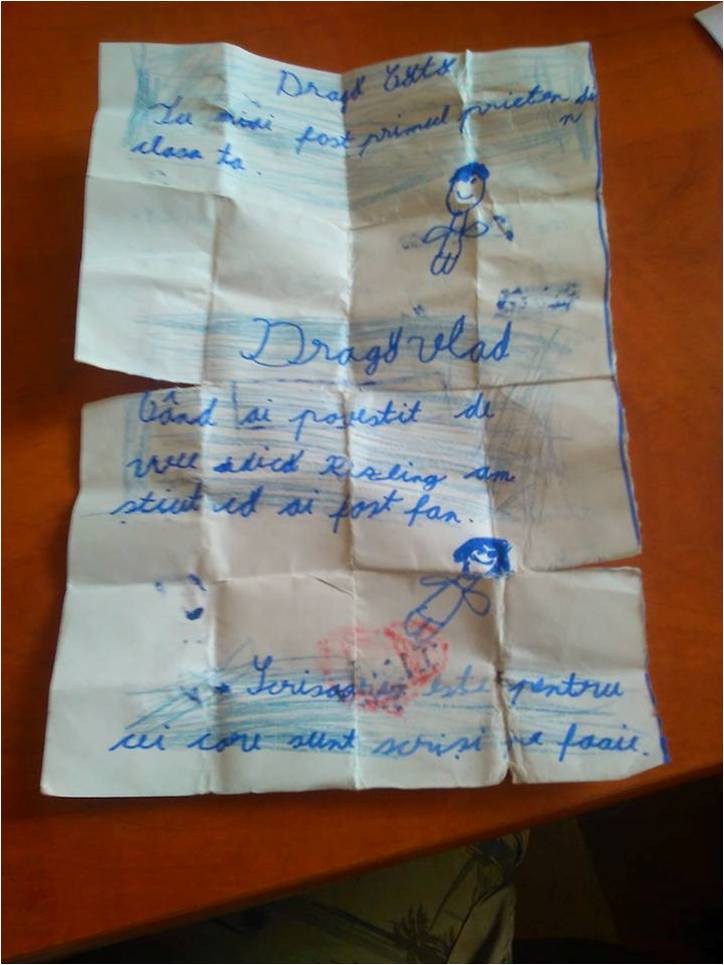 Dragă
Tu mi-ai fost primul prieten di
n
clasa ta.
Dragă Vlad
Când ai povestit de
wwe adică Resling am
știut că ai fost fan.
Scrisoarea este pentru
cei care sunt scriși pe foaie.